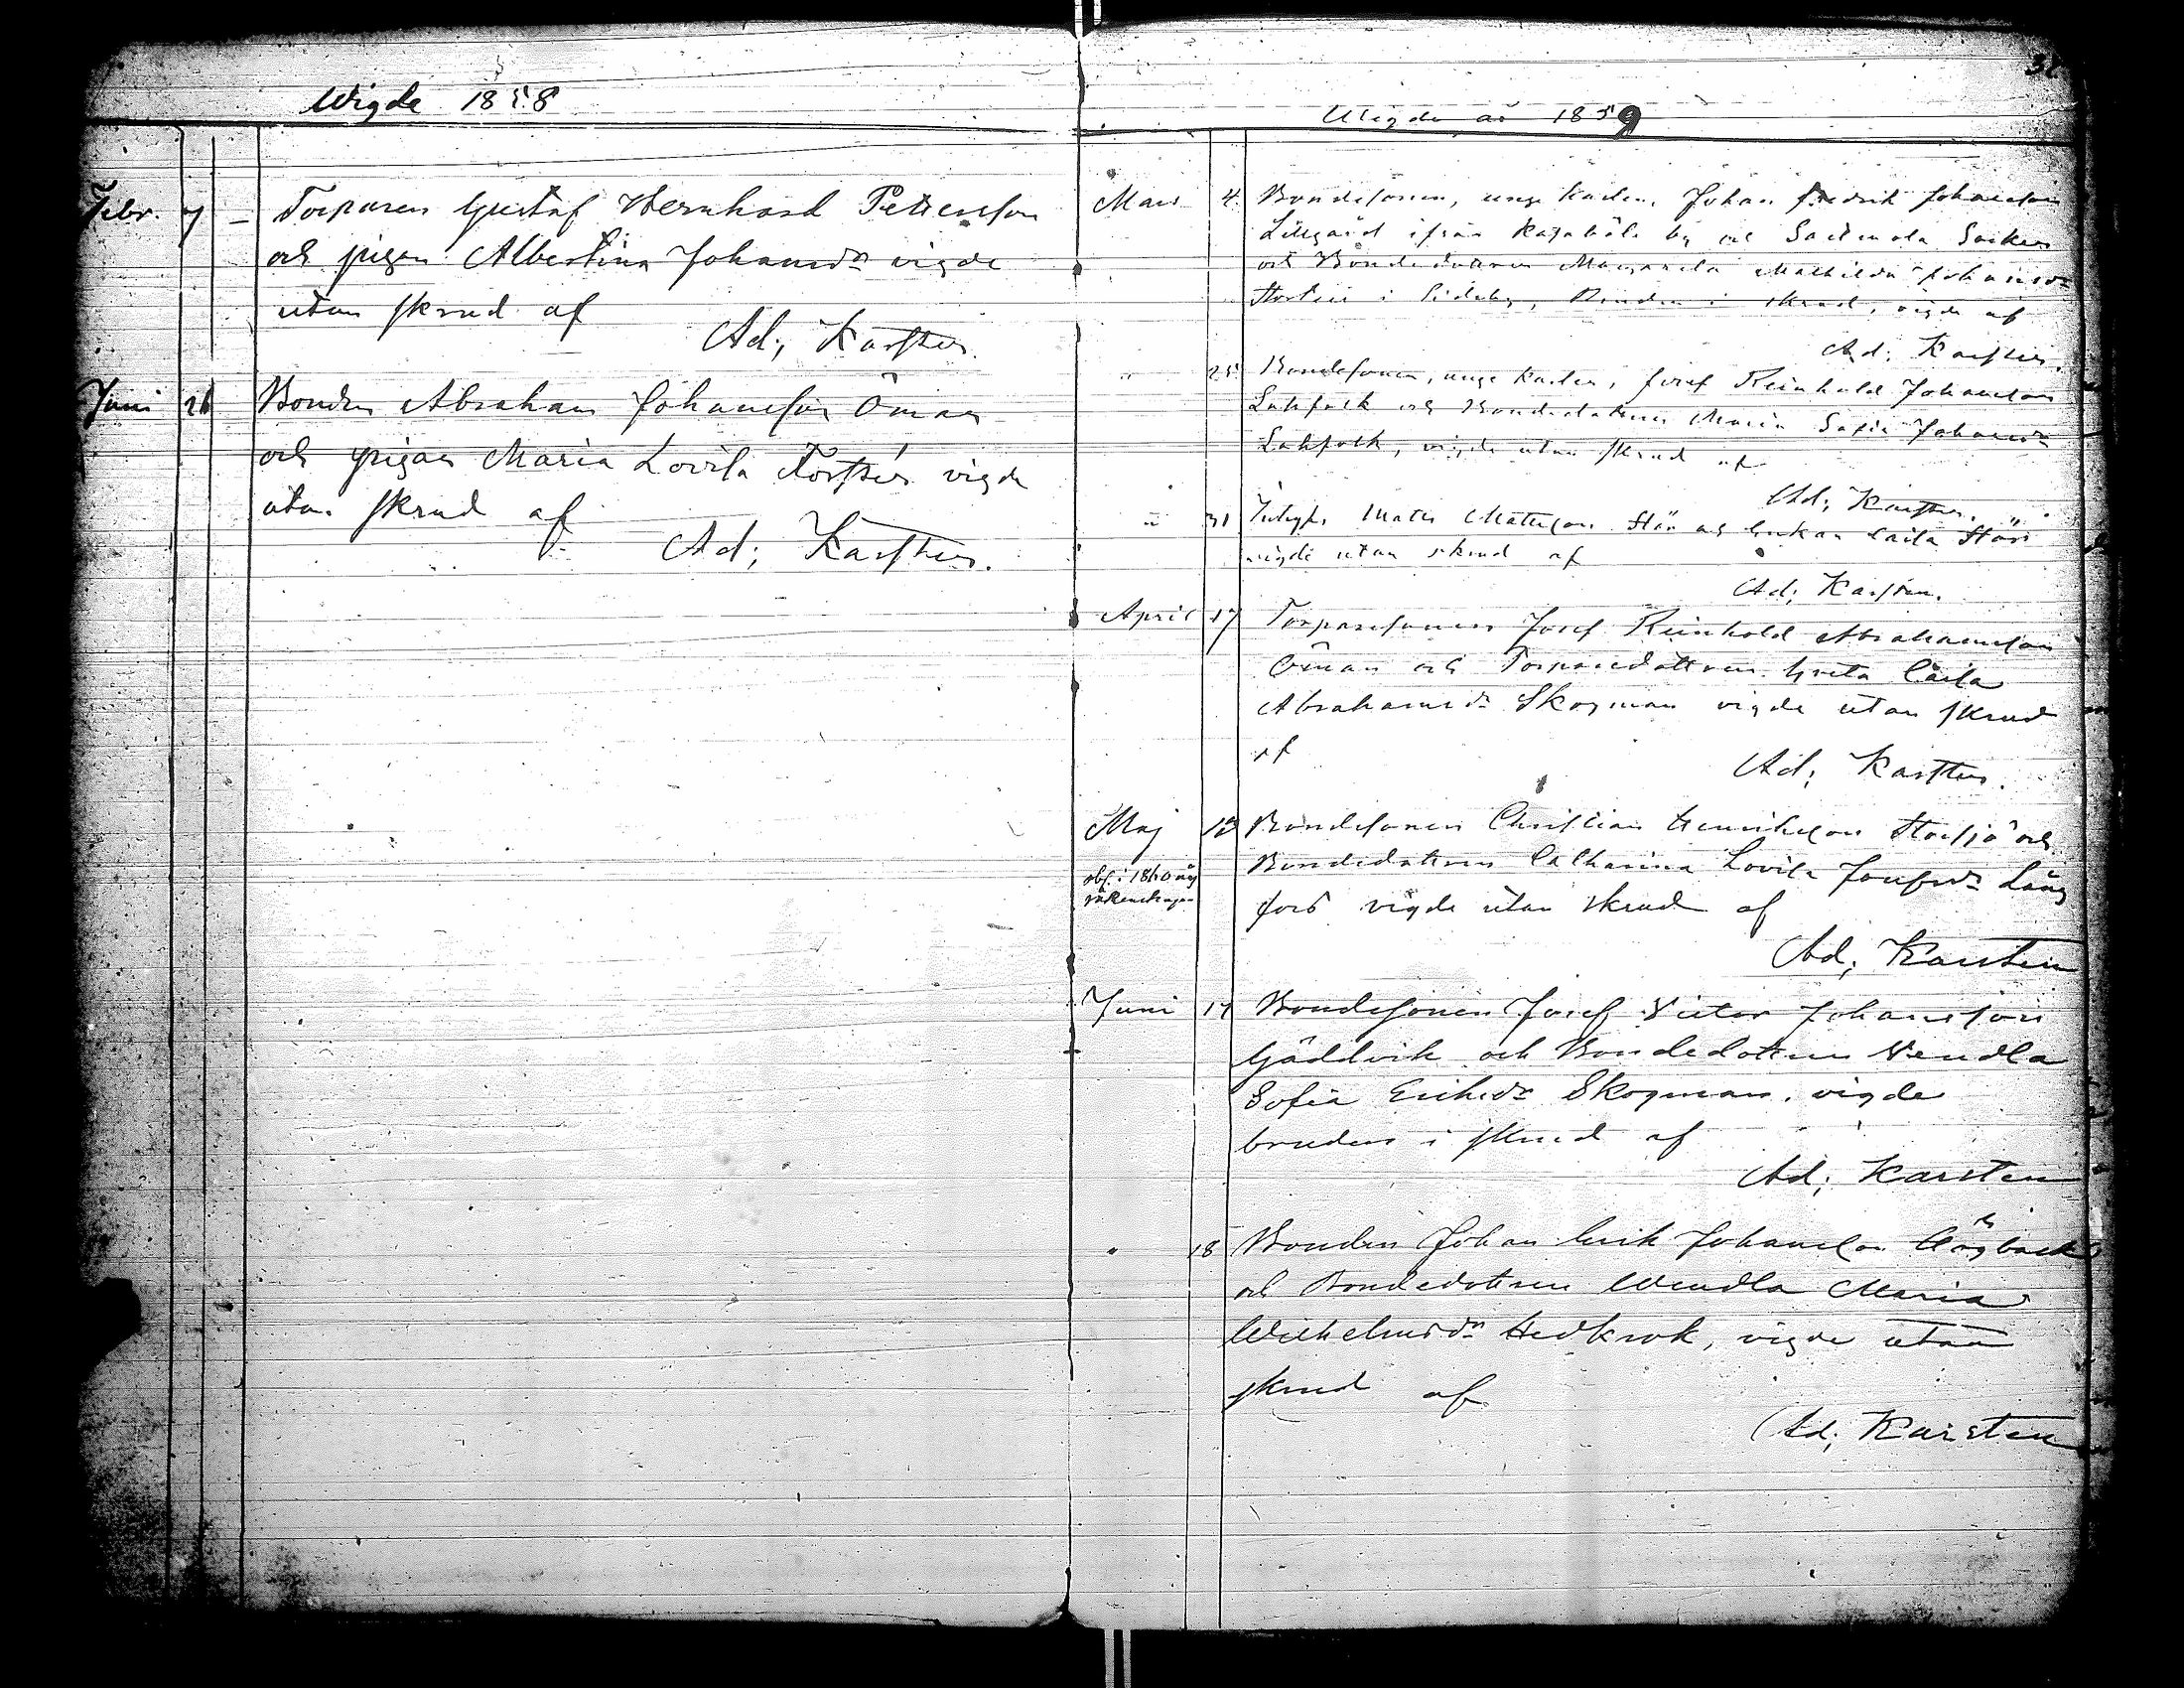 Wigde 1858
Febr. 7 – Torparen Gustaf Wernhard Pettersson
och pigan Albertina Johansdr vigde
utan skrud af
Ad; Karsten.
Juni 26 Bonden Abraham Johansson Öman
och pigan Maria Lovisa vigde
utan skrud af
Ad; Karsten.
Wigde år 1859
Mars 4 Bondesonen, unge karlen, Johan Fredrik Johansson
Lillgård ifrån by och Socken
och Bondedottren Margareta Mathilda Johansdr
i Sideby, Bruden i skrud, vigde af
Ad; Karsten.
" 25 Bondesonen, unge karlen, Josef Reinhold Johansson
Låhfolk och Bondedottren Maria Sofia Johansdr
Låhfolk, vigde utan skrud af
Ad; Karsten.
" 31 Matts Mattsson Stör och Enkan Caisa Stör
vigde utan skrud af
Ad; Karsten.
April 17 Torparesonen Josef Reinhold Abrahamsson
Öman och Torparedottren Greta Caisa
Abrahamsdr Skogman vigde utan skrud
af
Ad; Karsten.
Maj 13 Bondesonen Christian Henriksson Storsjö och
Bondedottren Catharina Lovisa Josefsdr Lång
fors vigde utan skrud af
obs. i 1860
Ad; Karsten
Juni 17 Bondesonen Josef Victor Johansson
Gäddvik och Bondedottren Vendla
Sofia Eriksdr Skogman, vigde
bruden i skrud af
Ad; Karsten
" 18 Bonden Johan Erik Johansson Högback
och Bondedottren Wendla Maria
Wilhelmsdr Hedkrok, vigde utan
skrud af
Ad; Karsten